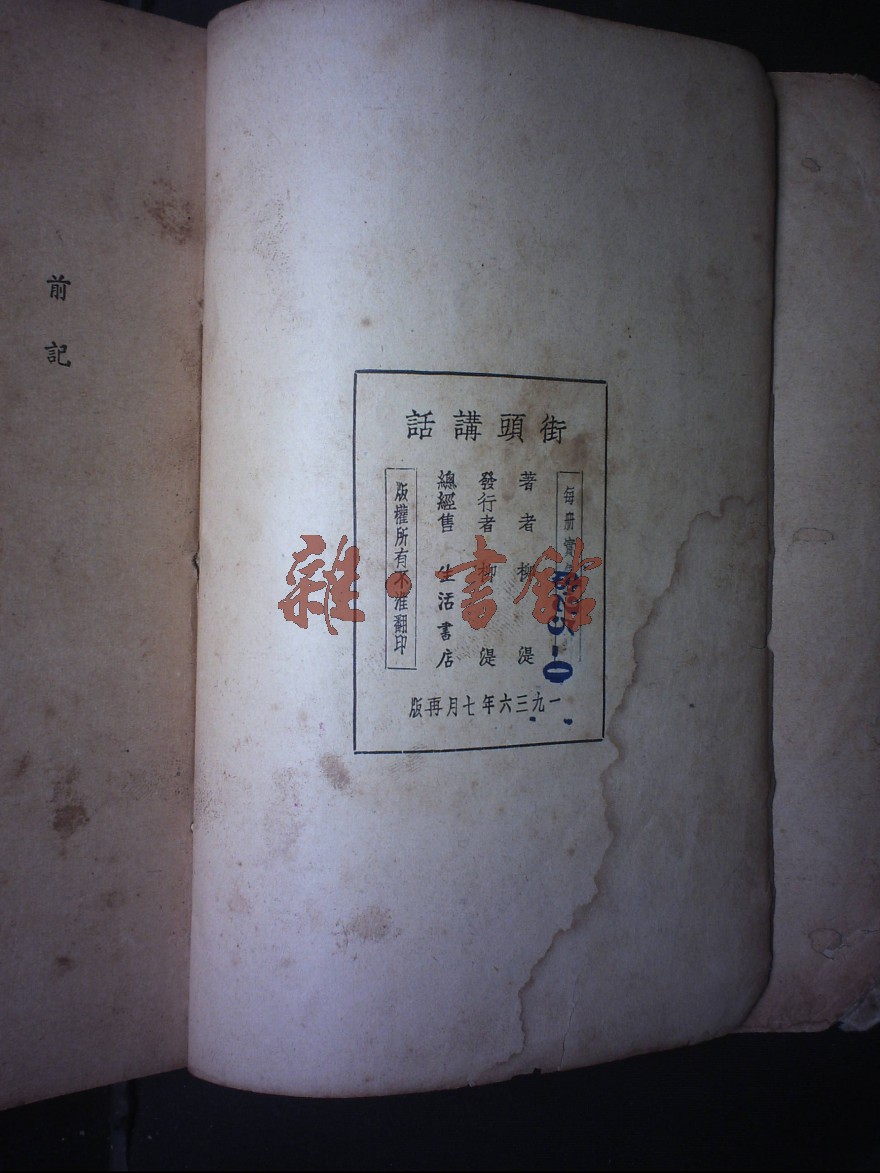 街頭講話
每册實
著者 柳湜
發行者 柳湜
總經售 生活書店
版權所有不准翻印
一九三六年七月再版
前記
雜·書館